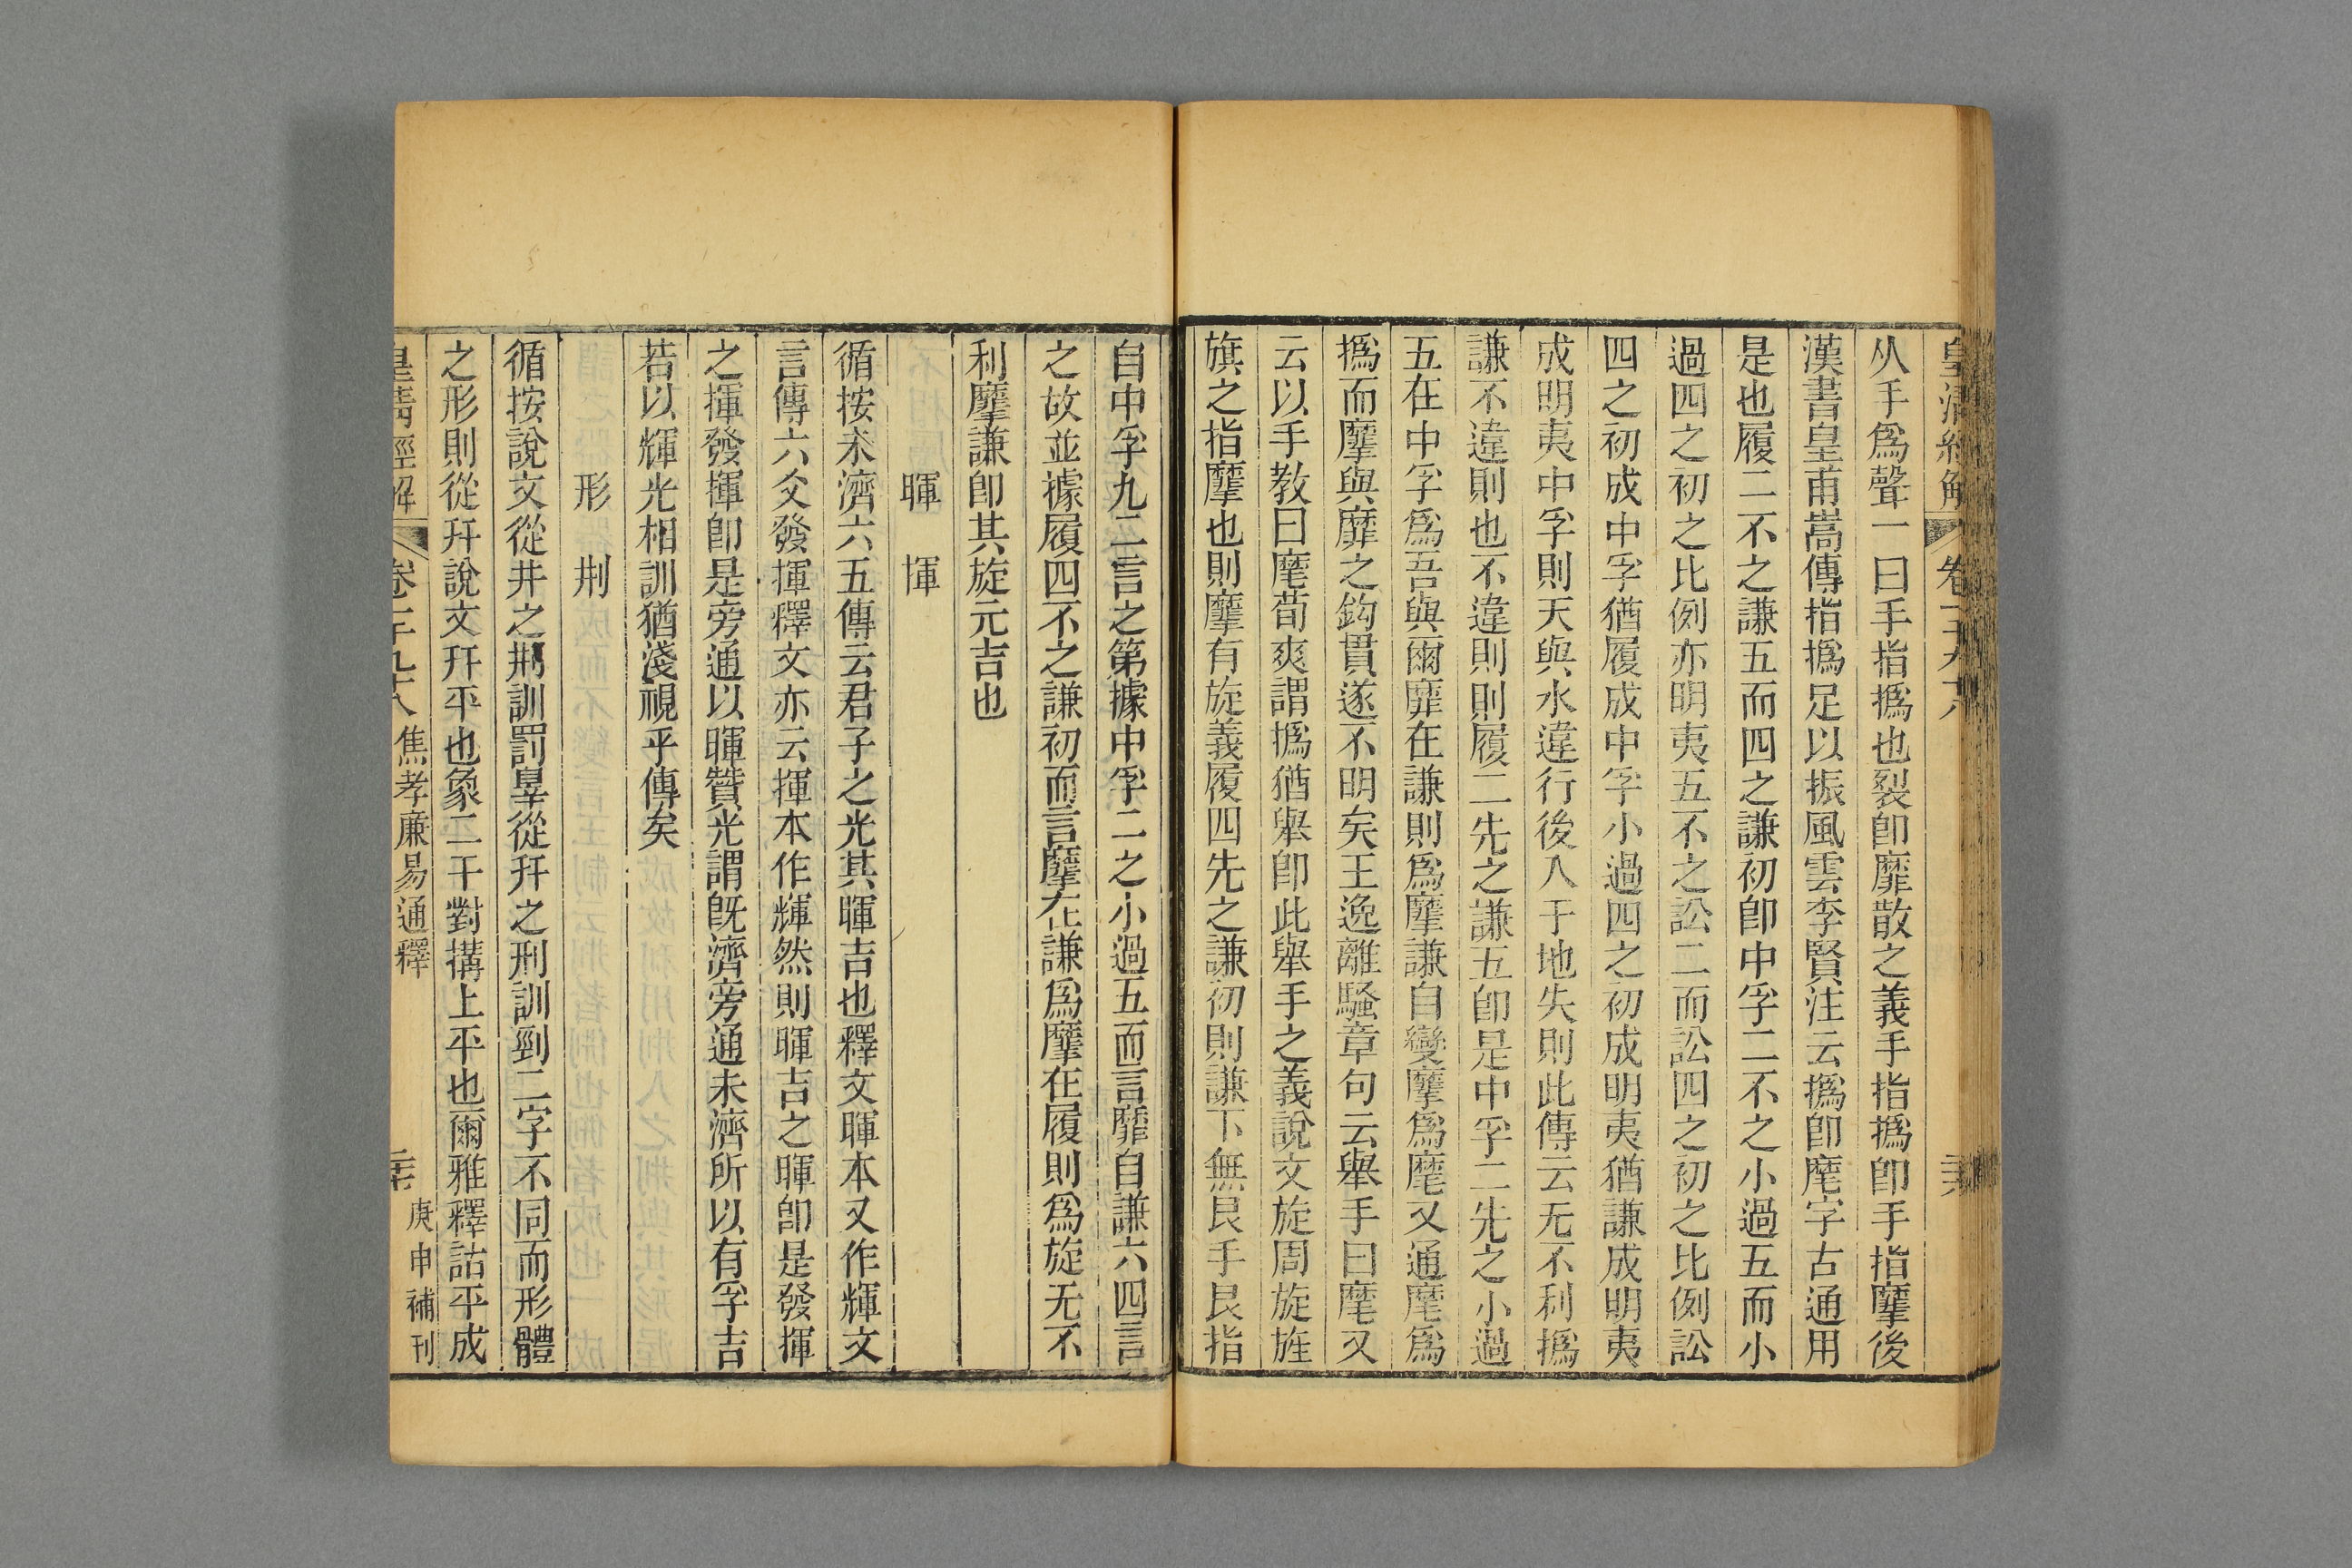 皇清經解 卷
从手爲聲一曰手指撝也裂卽靡散之義手指撝卽手指摩後
漢書皇甫嵩傳指撝足以振風雲李賢注云撝卽麾字古通用
是也履二不之謙五而四之謙初卽中孚二不之小過五而小
過四之初之比例亦明夷五不之訟二而訟四之初之比例訟
四之初成中孚猶履成中孚小過四之初成明夷猶謙成明夷
成明夷中孚則天與水違行後入于地失則此傳云无不利撝
謙不違則也不違則則履二先之謙五卽是中孚二先之小過
五在中孚爲吾與爾靡在謙則爲摩謙自變摩爲麾又通麾爲
撝而摩與靡之鈎貫遂不明矣王逸離騷章句云舉手曰麾又
云以手教曰麾荀爽謂撝猶舉卽此舉手之義說文旋周旋旌
旗之指摩也則摩有旋義履四先之謙初則謙下無艮手艮指
自中孚九二言之第據中孚二之小過五而言靡自謙六四言
之故並據履四不之謙初而言摩在謙爲摩在履則爲旋无不
利摩謙卽其旋元吉也
暉 揮
循按未濟六五傳云君子之光其暉吉也釋文暉本又作輝文
言傳六爻發揮釋文亦云揮本作輝然則暉吉之暉卽是發揮
之揮發揮卽是旁通以暉贊光謂旣濟旁通未濟所以有孚吉
若以輝光相訓猶淺視乎傳矣
形 㓝
循按說文從井之㓝訓罰辠從幵之刑訓剄二字不同而形體
之形則從幵說文幵平也象二干對搆上平也爾雅釋詁平成
皇清經解 卷一千九十八 焦孝廉易通釋 庚申補刊